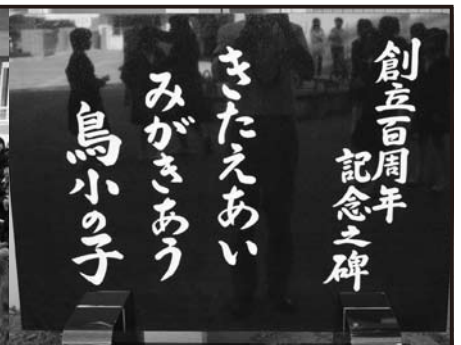 創立百周年
記念之碑
きたえあい
みがきあう
鳥小の子